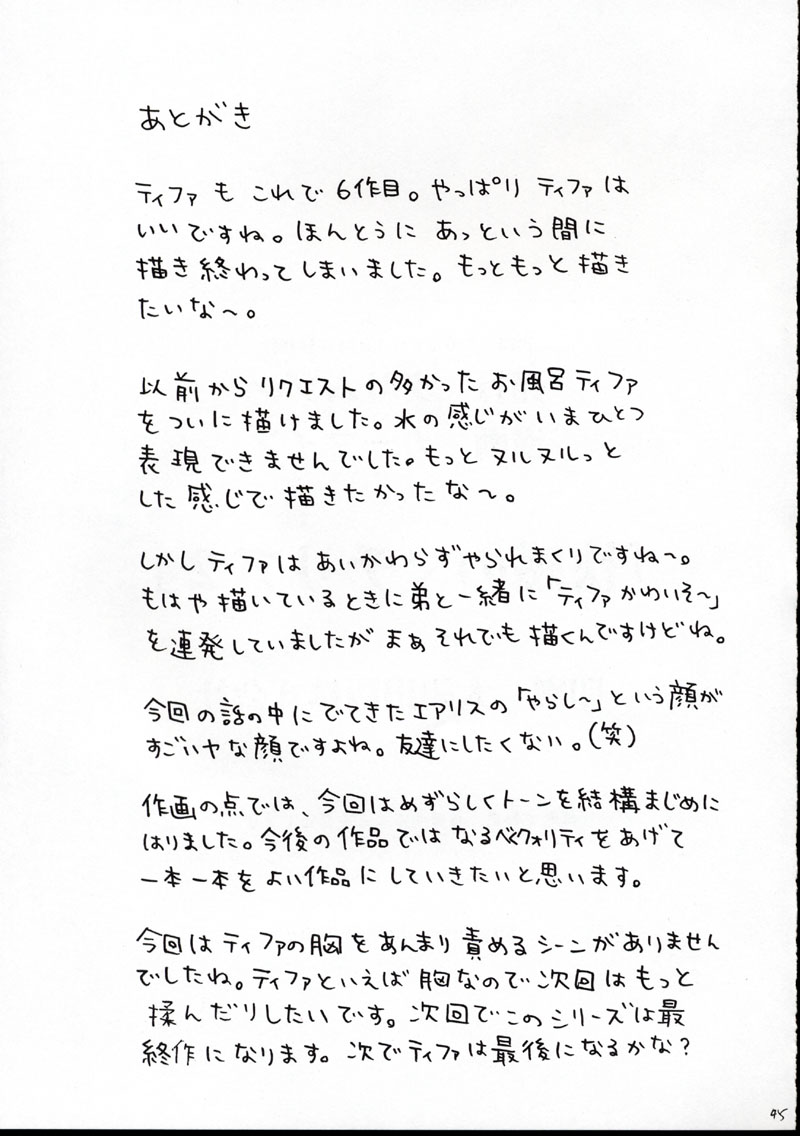 あとがき
ティファも これで 6作目。やっぱり ティファは
いいですね。ほんとうに あっという間に
描き終わってしまいました。もっともっと描き
たいな〜。
以前からリクエストの多かった お風呂ティファ
をついに描けました。水の感じがいまひとつ
表現できませんでした。もっとヌルヌルっと
した感じで描きたかったな〜。
しかし ティファは あいかわらずやられまくりですね〜。
もはや描いているときに弟と一緒に「ティファかわいそ〜」
を連発していましたが まぁそれでも描くんですけどね。
今回の話の中にでてきたエアリスの「やらし〜」という顔が
すごいヤな顔ですよね。友達にしたくない。(笑)
作画の点では、今回はめずらしくトーンを結構まじめに
はりました。今後の作品では なるべくクォリティをあげて
一本一本をよい作品にしていきたいと思います。
今回はティファの胸をあんまり責めるシーンがありません
でしたね。ティファといえば胸なので次回はもっと
揉んだりしたいです。次回でこのシリーズは最
終作になります。次でティファは最後になるかな?
45